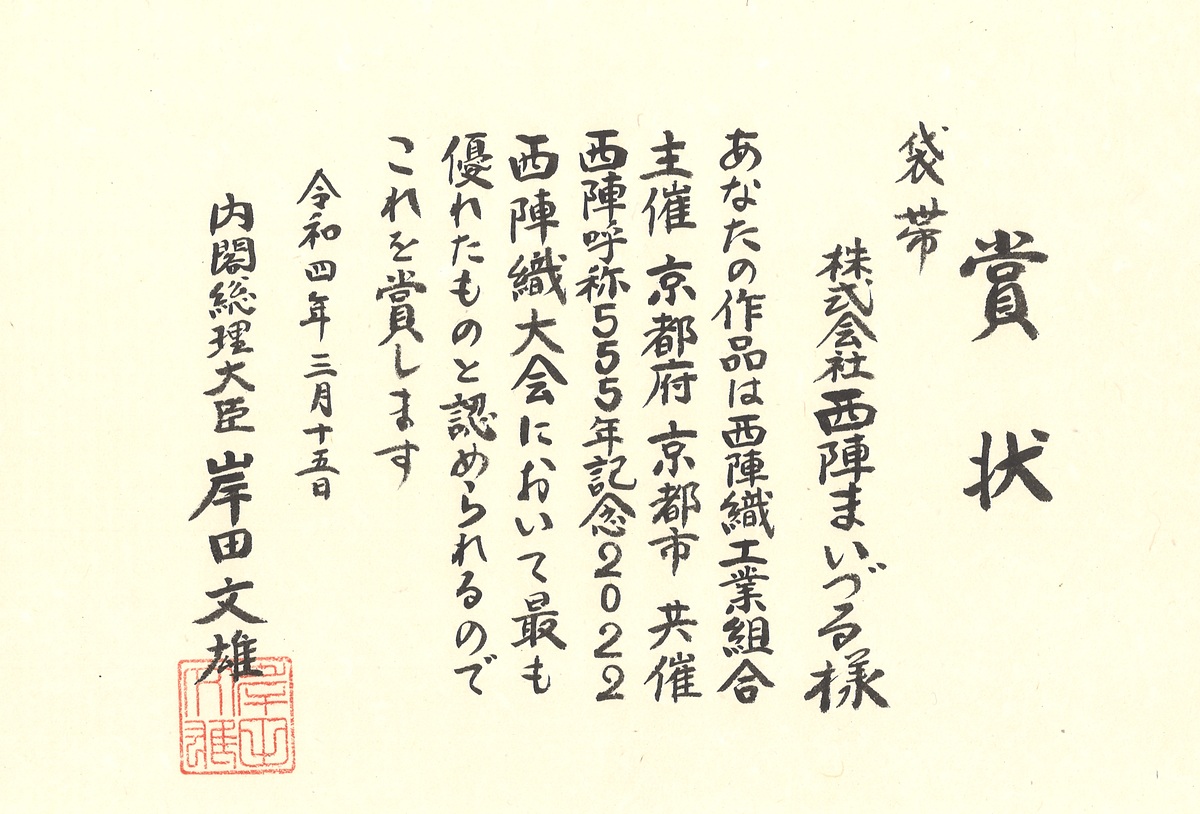 賞状
袋帯
株式会社西陣まいづる様
あなたの作品は西陣織工業組合
主催 京都府 京都市 共催
西陣呼称555年記念2022
西陣織大会において最も
優れたものと認められるので
これを賞します
令和四年三月十五日
内閣総理大臣 岸田文雄
岸田文雄